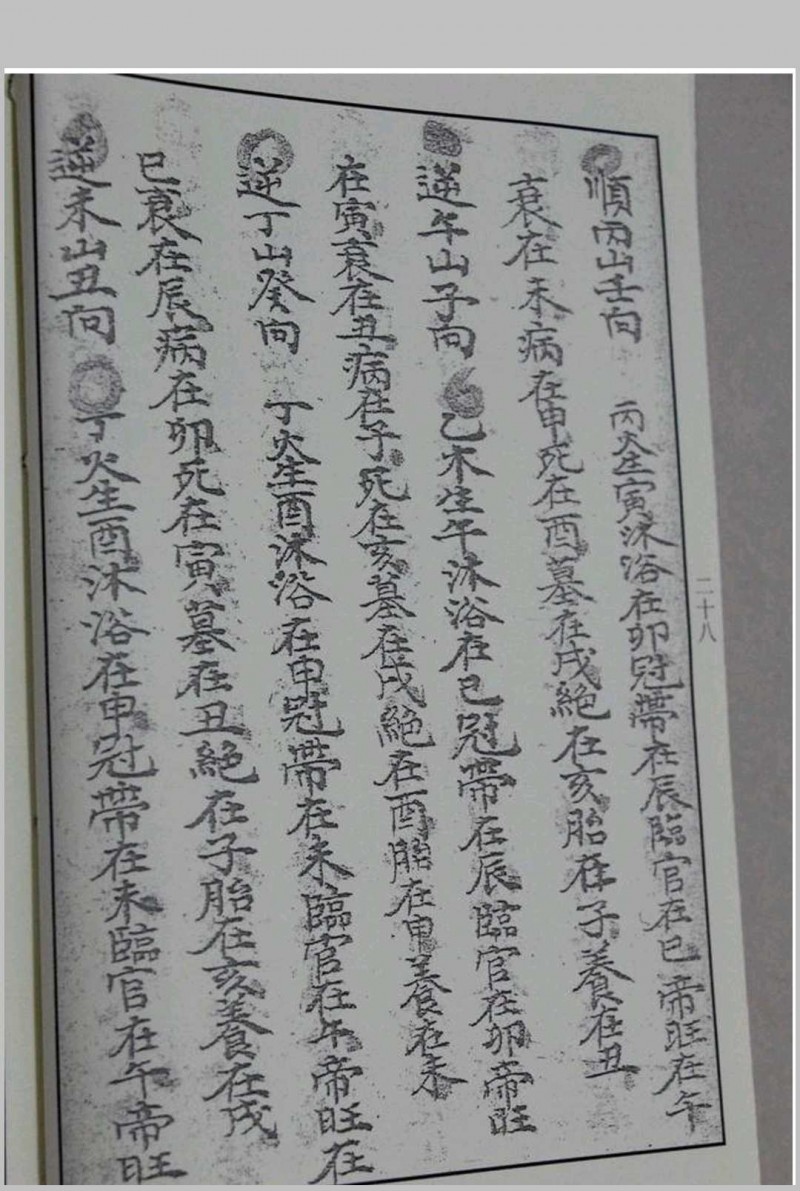 順丙山壬向 丙火生寅沐浴在卯冠帶在辰臨官在巳帝旺在午
衰在未病在申死在酉墓在戌絕在亥胎在子養在丑
逆午山子向 乙木生午沐浴在巳冠帶在辰臨官在卯帝旺
在寅衰在丑病在子死在亥墓在戌絕在酉胎在申養在未
逆丁山癸向 丁火生酉沐浴在申冠帶在未臨官在午帝旺在
巳衰在辰病在卯死在寅墓在丑絕在子胎在亥養在戌
逆未山丑向 丁火生酉沐浴在申冠帶在未臨官在午帝旺
二十八